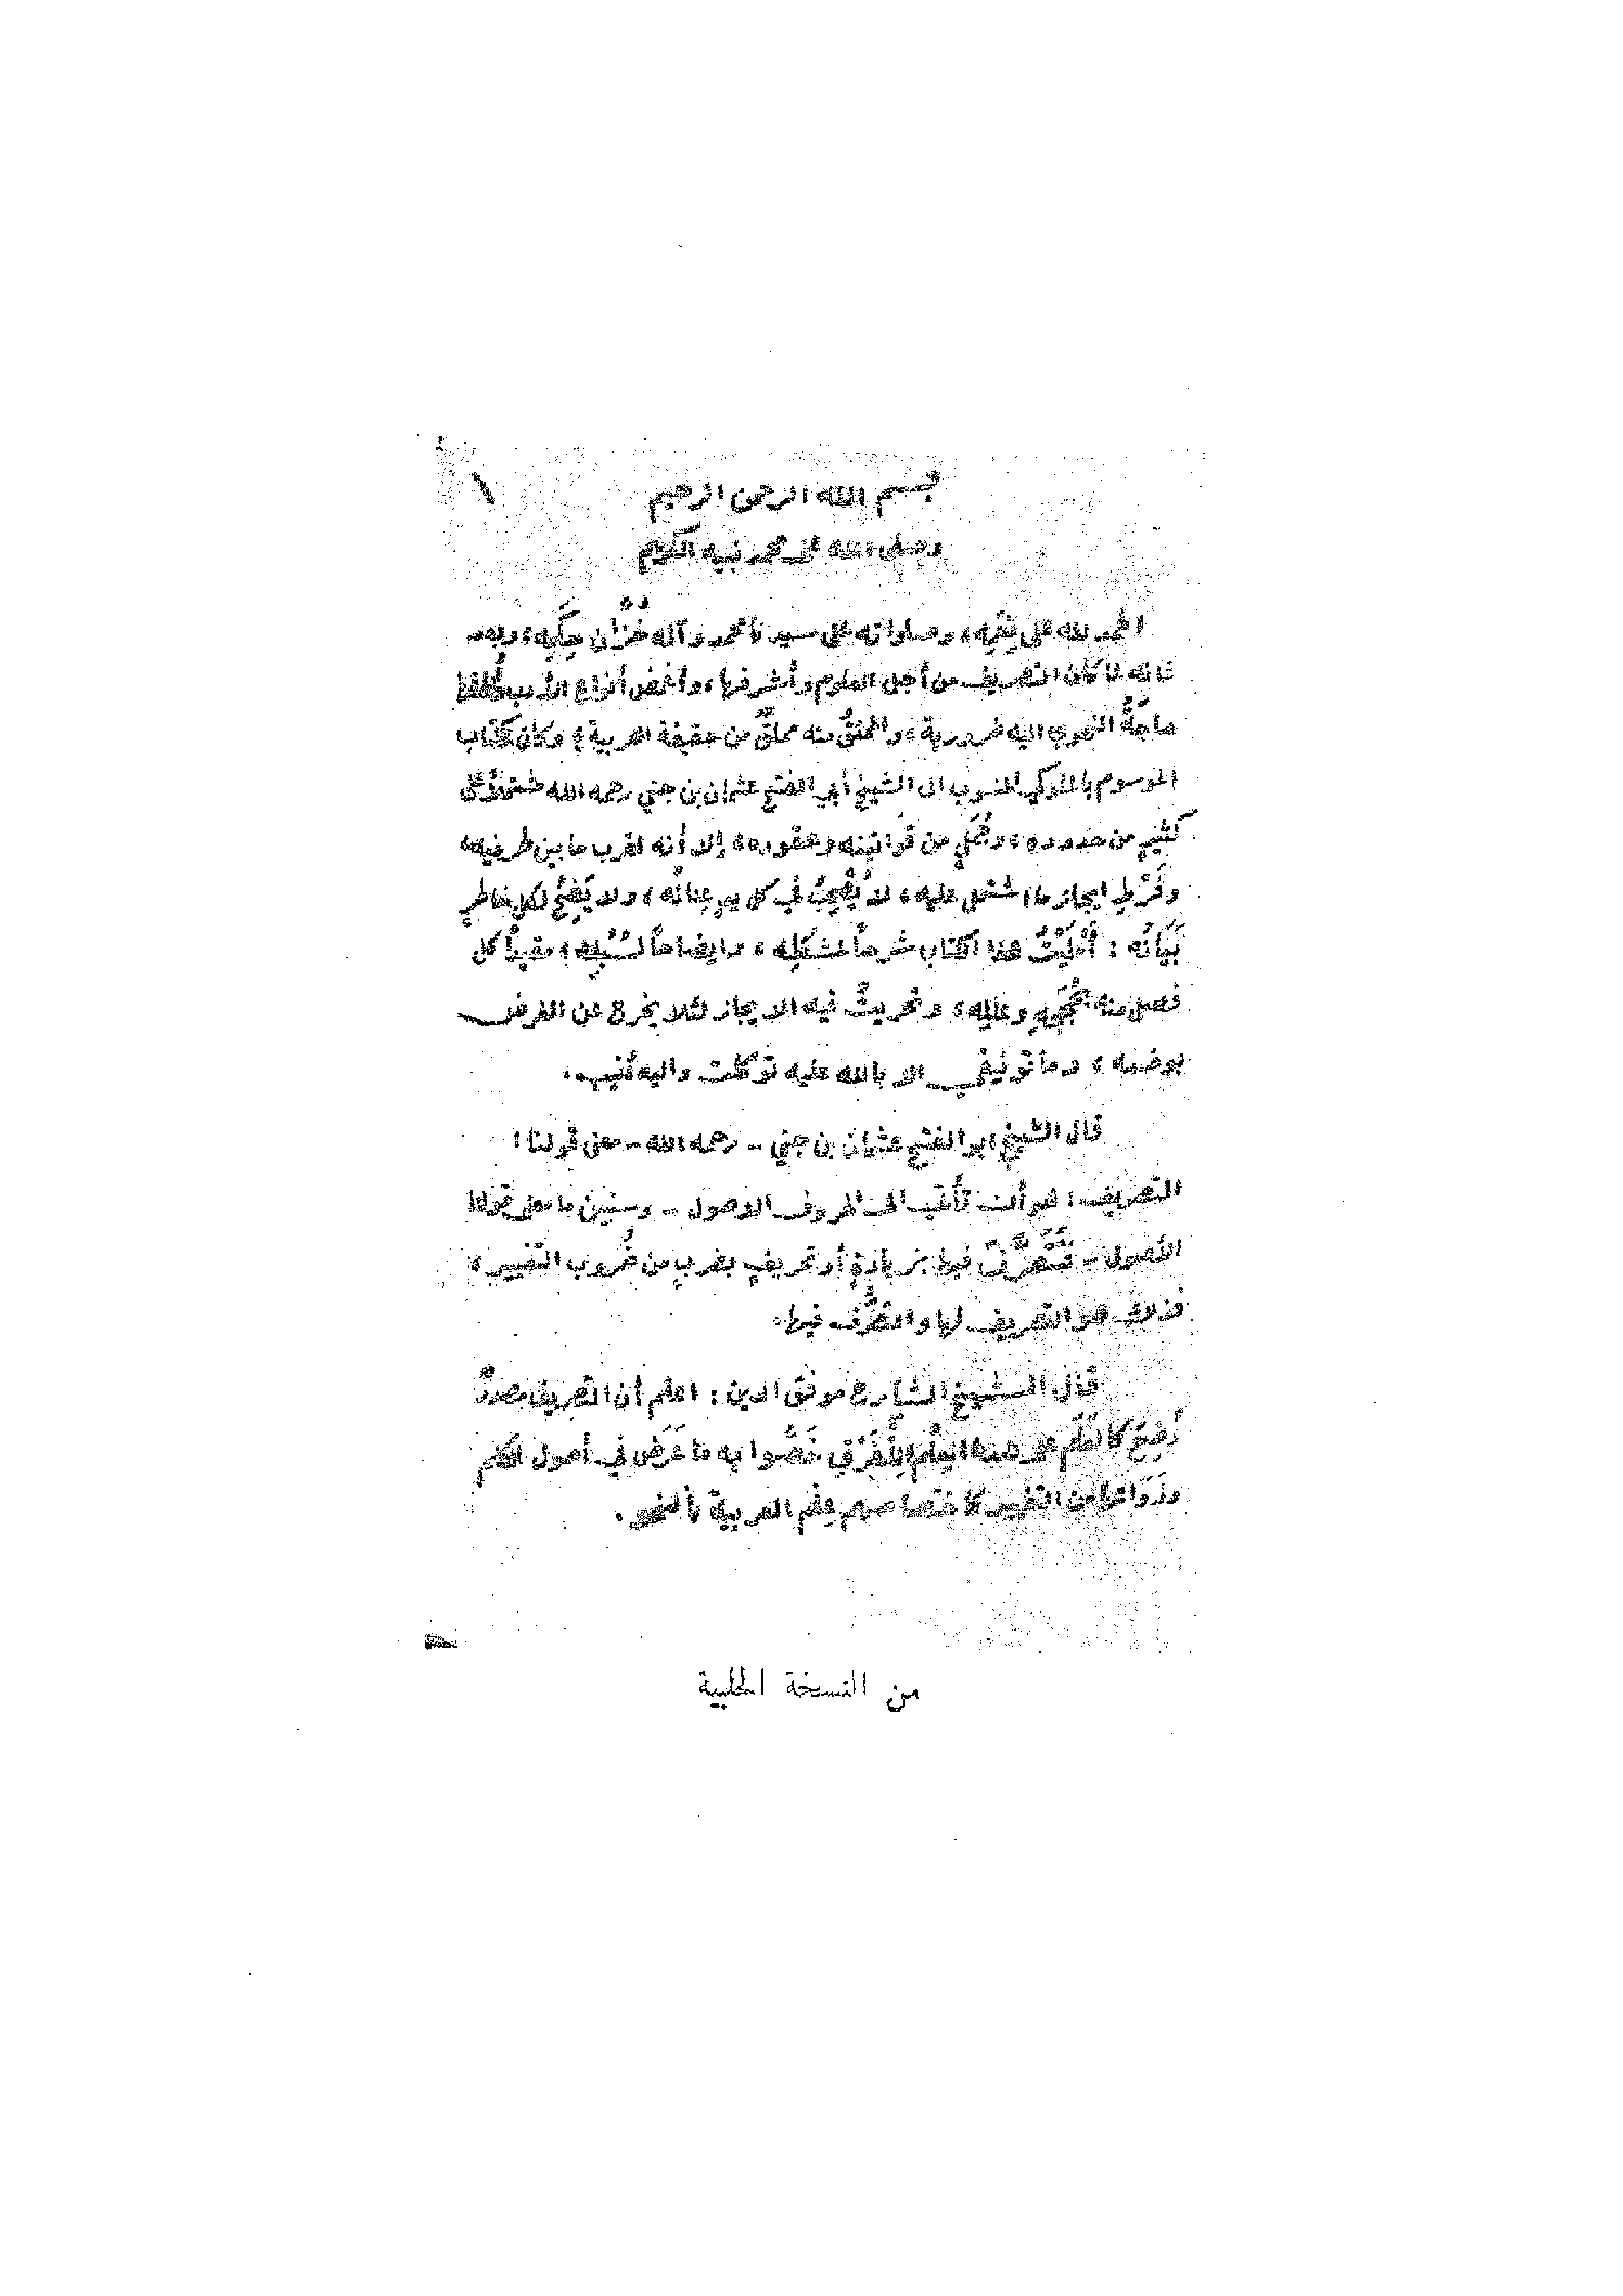 ١
بسم الله الرحمن الرحيم
وصلى الله على محمد نبيه الكريم
الحمد لله على نِعَمِه، وصلواته على سيدنا محمد وآله خُزَّان حِكَمِه، وبعد
فانه لما كان التصريف من أجل العلوم وأشرفها، وأغمض أنواع الأدب وألطفها
حاجةُ النحوي اليه ضرورية، والمخلُّ منه مخلٌّ من حقيقة العربية؛ وكان الكتاب
الموسوم بالملوكي المنسوب الى الشيخ أبي الفتح عثمان بن جني رحمه الله مشتملاً على
كثيرٍ من حدوده، وجُمَلٍ من قوانينه وعقوده، إلا أنه لقرب ما بين طرفيه،
وفَرْطِ ايجاز ما اشتمل عليه، لا يُصْحِبُ في كل يدٍ عِنانُه، ولا يَضِحُ لكل خاطرٍ
بَيَانُه : أَمْلَيْتُ هذا الكتاب شرحاً لمشكلِه، وايضاحاً لسُبُلِه، مقيداً كل
فصل منه بحُجَجِهِ وعِلَلِه، وتحريتُ فيه الايجاز لئلا يخرج عن الغرض
بوضعه، وما توفيقي الا بالله عليه توكلت واليه أنيب.
قال الشيخ ابو الفتح عثمان بن جني - رحمه الله - معنى قولنا :
التصريف: هو أن تأتي الى الحروف الاصول - وسنبين ما معنى قولنا
الأصول - فَتَتَصَرَّفَ فيها بزيادةٍ أو تحريفٍ بضربٍ من ضُروب التغيير،
فذلك هو التصريف لها والتصرُّف فيها.
قال الشيخ الشارح موفق الدين : اعلم أن التصريف مصدرٌ
وُضِعَ كالعَلَم على هذا العِلْم للفَرْق خَصُّوا به ما عَرَض في أصول الكلم
وذَوَاتها من التغيير كاختصاصهم عِلْم العربية بالنحو.
من النسخة الحلبية